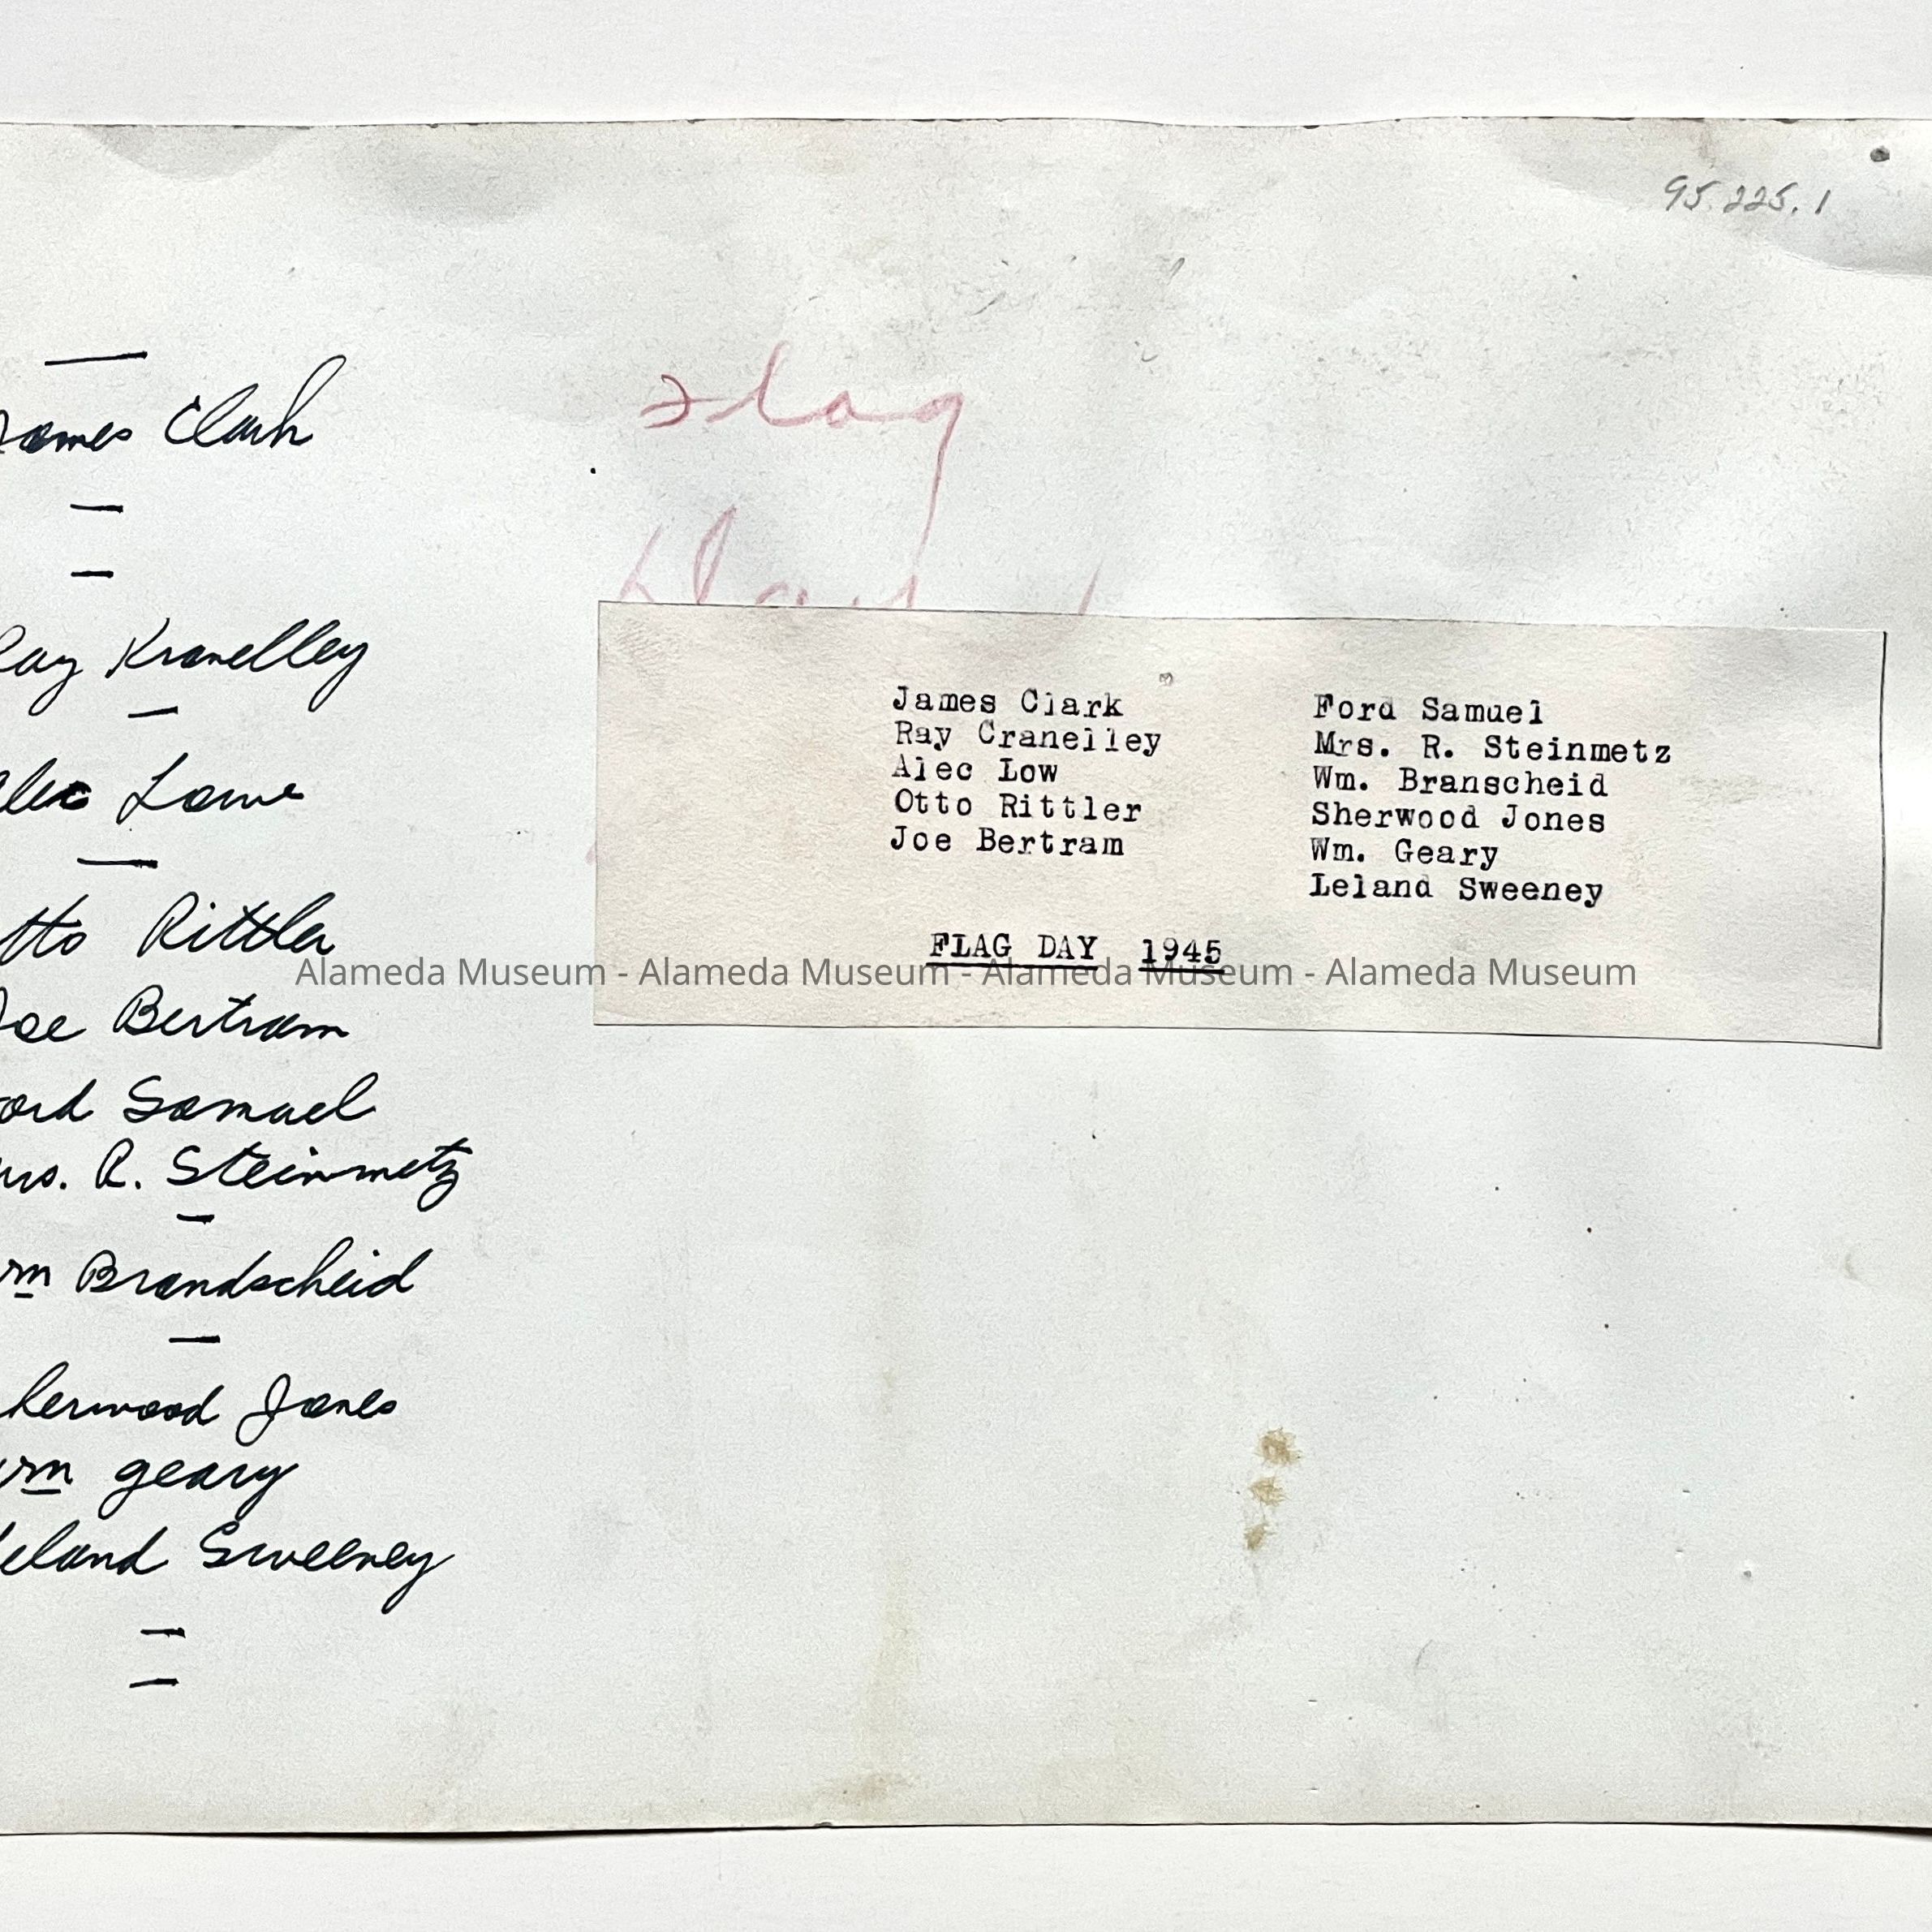 95.225.1
James Clark
Ray Kranelley
Alec Lowe
Otto Rittler
Joe Bertram
Ford Samuel
Mrs. R. Steinmetz
Wm Brandscheid
Sherwood Jones
Wm Geary
Leland Sweeney
Flag
James Clark
Ray Cranelley
Alec Low
Otto Rittler
Joe Bertram
Ford Samuel
Mrs. R. Steinmetz
Wm. Branscheid
Sherwood Jones
Wm. Geary
Leland Sweeney
FLAG DAY 1945
Alameda Museum - Alameda Museum - Alameda Museum - Alameda Museum